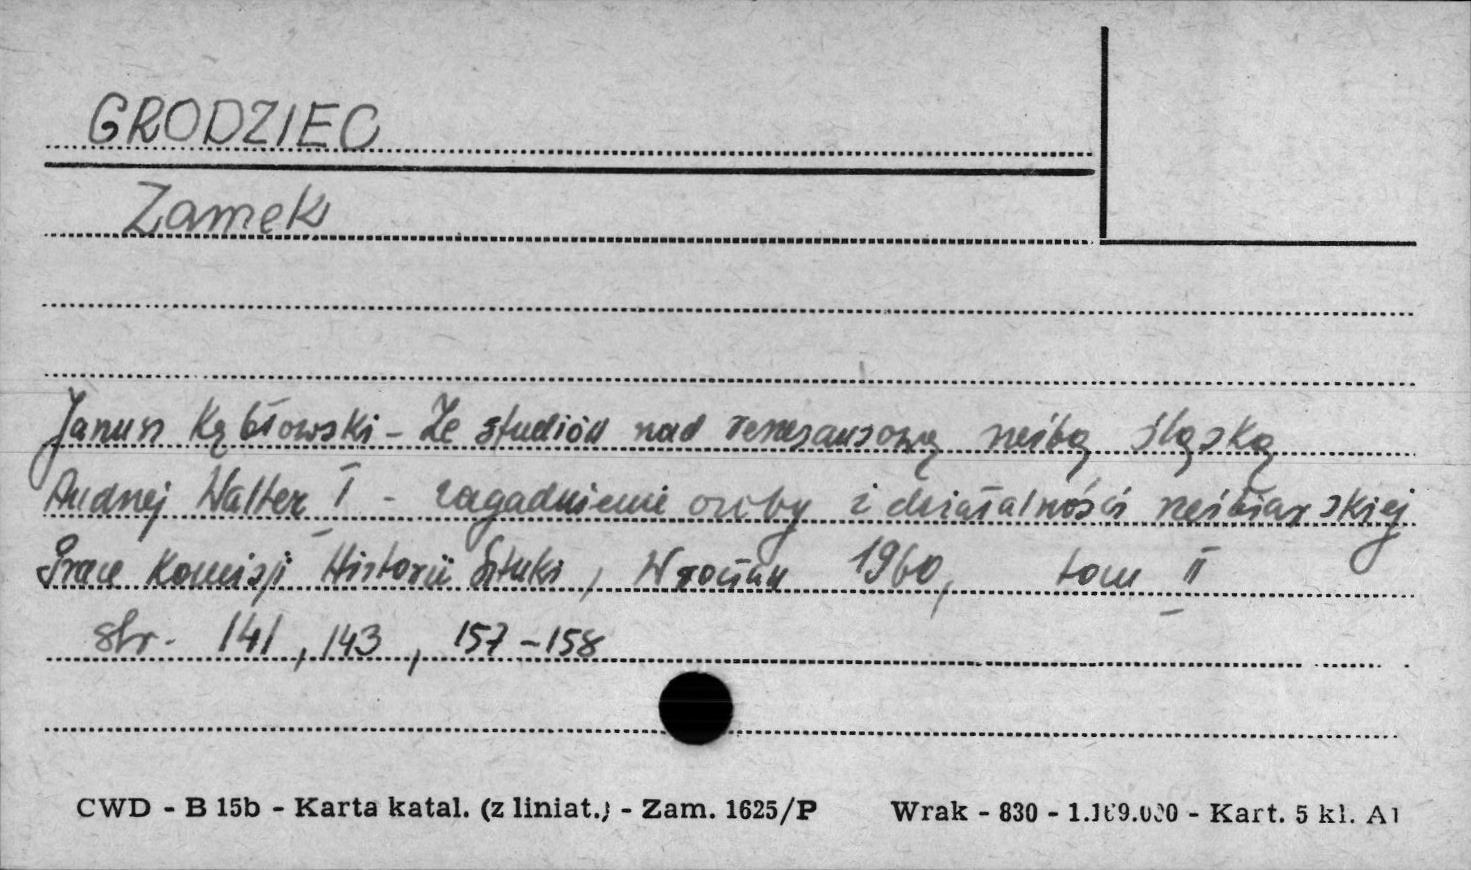 GRODZIEC
Zamek
Janusz Kębłowski - Ze studiów nad renesansową rzeźbą śląską
Andrzej Walter I - zagadnienie osoby i działalności rzeźbiarskiej
Prace Komisji Historii Sztuki, Wrocław 1960, tom II
str. 141, 143, 157-158
CWD - B 15b - Karta katal. (z liniat.) - Zam. 1625/P Wrak - 830 - Kart. 5 kl. A1